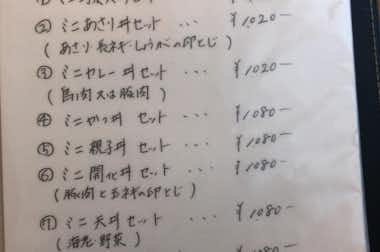 ② ミニあさり丼セット ... ¥1,020−
(あさり・長ネギ・しょうがの卵とじ)
③ ミニカレー丼セット ... ¥1,020−
(鳥肉又は豚肉)
④ ミニかつ丼セット ... ¥1,080−
⑤ ミニ親子丼セット ... ¥1,080−
⑥ ミニ開化丼セット ... ¥1,080−
(豚肉と玉ネギの卵とじ)
⑦ ミニ天丼セット ... ¥1,080−
(海老・野菜)